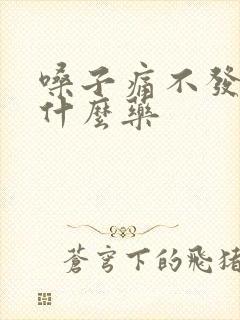 嗓子痛不發
什麼藥
蒼穹下的飛猪